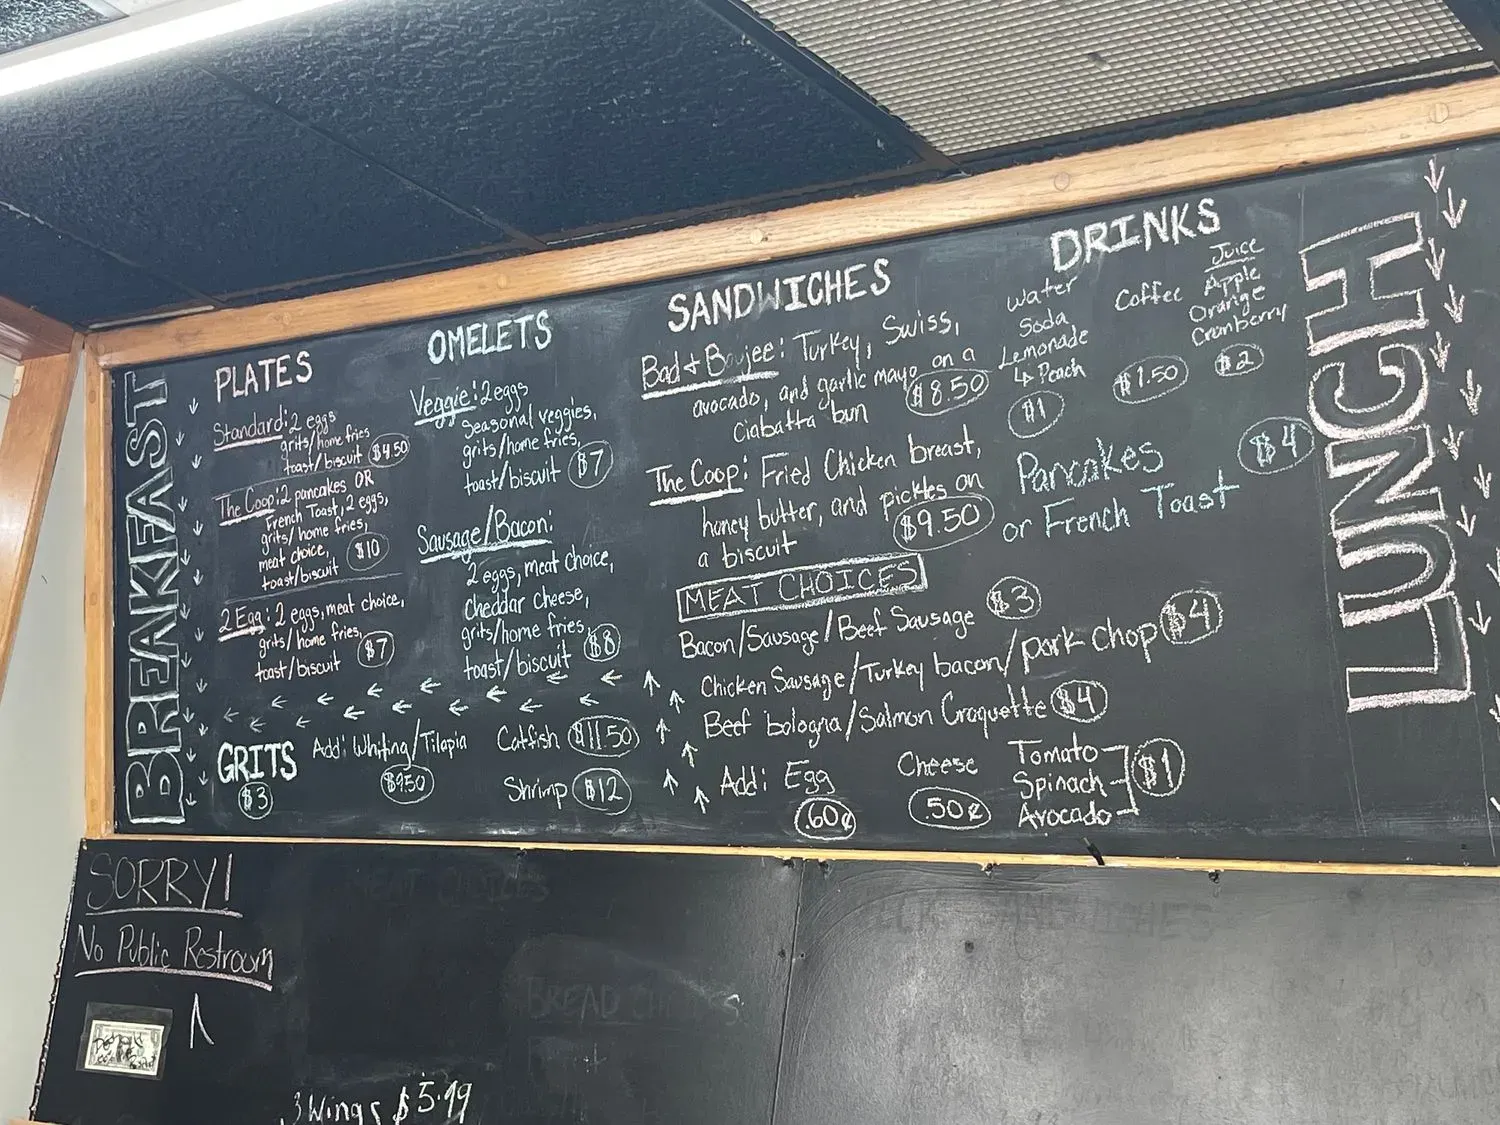 BREAKFAST
PLATES
Standard: 2 eggs
grits/home fries
toast/biscuit $4.50
The Coop: 2 pancakes OR
French Toast, 2 eggs,
grits/home fries,
meat choice,
toast/biscuit $10
2 Egg: 2 eggs, meat choice,
grits/home fries,
toast/biscuit $7
OMELETS
Veggie: 2 eggs
seasonal veggies,
grits/home fries,
toast/biscuit $7
Sausage/Bacon:
2 eggs, meat choice,
cheddar cheese,
grits/home fries,
toast/biscuit $8
GRITS
$3
Add: Whiting/Tilapia
$9.50
Catfish $11.50
Shrimp $12
SANDWICHES
Bad + Boujee: Turkey, Swiss,
avocado, and garlic mayo on a
ciabatta bun $8.50
The Coop: Fried Chicken breast,
honey butter, and pickles on
a biscuit $9.50
MEAT CHOICES
Bacon/Sausage/Beef Sausage $3
Chicken Sausage/Turkey bacon/pork chop $4
Beef bologna/Salmon Croquette $4
Add: Egg
.60¢
Cheese
.50¢
Tomato
Spinach
Avocado
$1
DRINKS
Water
Soda
Lemonade
↳ Peach
$1
Coffee
$1.50
Juice
Apple
Orange
Cranberry
$2
Pancakes
or French Toast
$4
LUNCH
SORRY!
No Public Restroom
BREAD
3 Wings $5.99